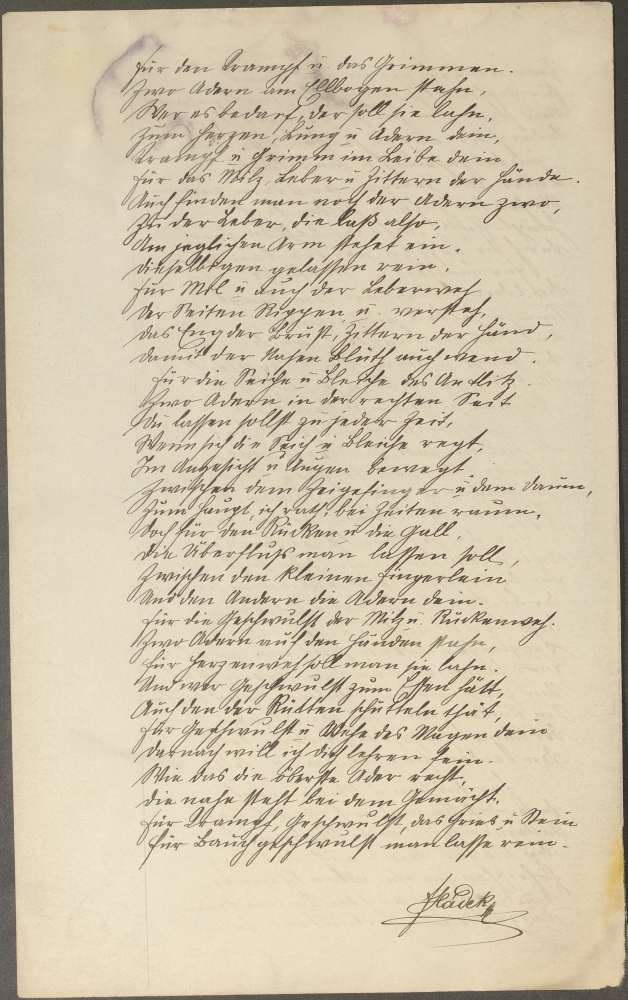 Für den Krampf u. das Grimmen.
Zwo Adern am Ellbogen stehn,
Wer es bedarf, der soll sie lahn,
Zum Herzen, Lung u Adern dein,
Krampf u Grimm im Leibe dein
Für das Milz, Leber u Zittern der Hände.
Auch findet man noch der Adern zwo,
Zu der Leber, die laß also,
Am jeglichen Arm stehet ein,
Dieselbigen gelassen rein,
Für Mil u auch der Leberweh
Der Seiten Rippen u. versteh,
Das Eng der Brust, Zittern der Händ,
Damit der Nasen Blüth auch wend.
Für die Seiche u Bleiche des Antlitz.
Zwo Adern in der rechten Seit
Du lassen sollst zu jeder Zeit,
Wenn sich die Seich u Bleiche regt,
Im Angesicht u Augen bewegt.
Zwischen dem Zeigefinger u dem Daum,
Zum Haupt, ich rath bei Zeiten raum,
Doch für den Rücken u die Gall,
Die Überfluß man lassen soll,
Zwischen den kleinen Fingerlein
Und den Andern die Adern dein.
Für die Geschwulst der Milz u. Rückenweh.
Zwo Adern auf den Händen stehn,
Für Herzenweh soll man sie lahn.
Und wer Geschwulst zum Essen hätt,
Auch den der Ritten schütteln thät,
Für Geschwulst u Wehe des Magen dein
Darnach will ich dich lehren fein.
Wie das die oberste Ader recht,
Die nahe steht bei dem Gemächt.
Für Krampf, Geschwulst, das Gries u Stein
Für Bauchgeschwulst man lasse rein.